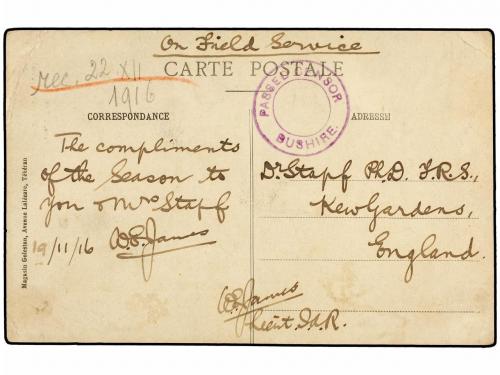 On Field Service
CARTE POSTALE
rec. 22 XII
1916
PASSED CENSOR
BUSHIRE.
CORRESPONDANCE
ADRESSE
The compliments
of the Season to
you & Mrs Stapf
19/11/16 W.E. James
Dr Stapf Ph.D. F.R.S.,
Kew Gardens,
England.
W.E. James
Lieut I.A.R.
Magasin Golestan, Avenue Lalézare, Téhéran